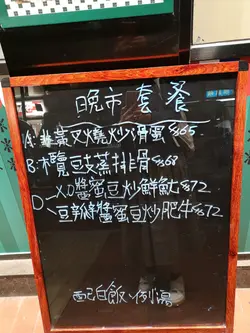 晚市套餐
A:韭黃叉燒炒滑蛋 $65
B:欖豆豉蒸排骨 $68
D-XO醬蜜豆炒鮮魷 $72
豆辦醬蜜豆炒肥牛 $72
配:白飯、例湯